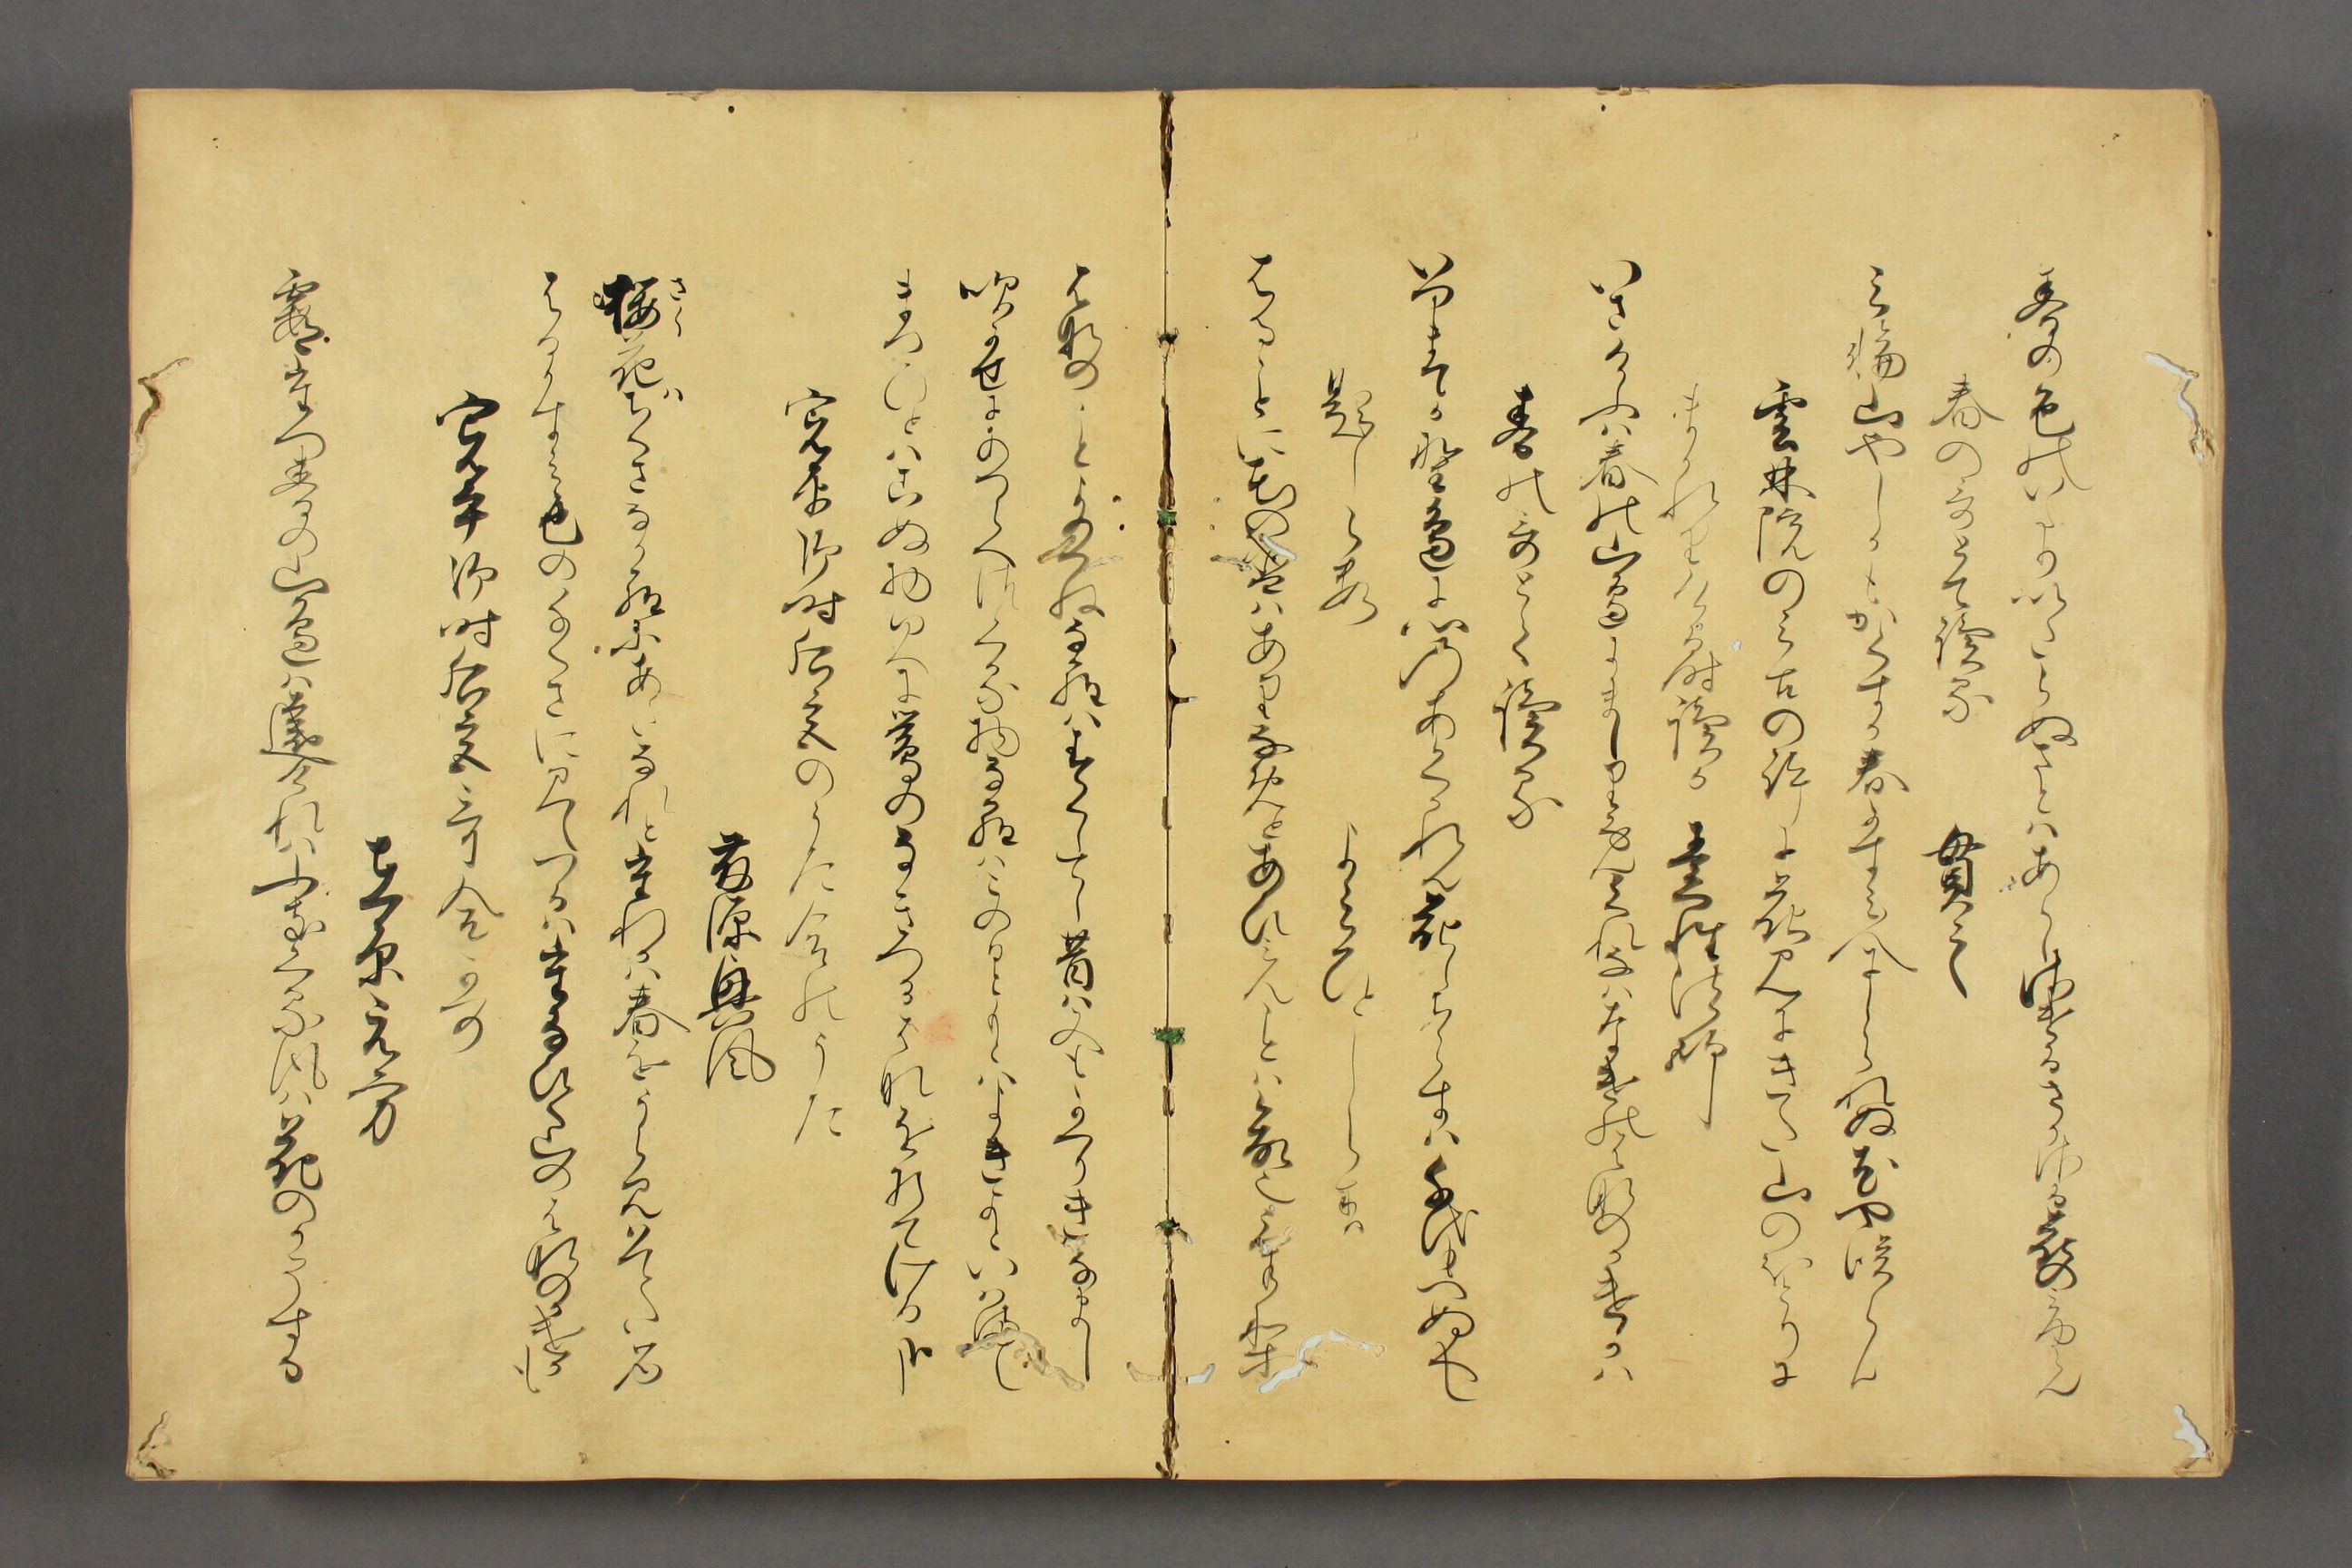 春の色のいたりいたらぬさとはあらしさけるさかさる花の見ゆらん
春の哥とて讀る　貫之
三輪山をしかもかくすか春かすみ人にしられぬ花や咲らん
雲林院のみこの許に花見にきた山のほとりに
まかれりける時讀る　素性法師
いさけふは春の山邊にましりなん暮なはなけの花の陰かは
春の哥とて讀る
いつまてか野邊に心のあくかれん花しちらすは千代もへぬへし
題しらす　よみ人しらす
はることに花の盛はありなめとあひみんことは命也けり
はなのこと世のつねならはすくしてし昔は又もかへりきなまし
吹かせにあつらへつくる物ならはこの一もとはよきよといはまし
まつ人もこぬ物ゆへに鶯のなきつるはなをおりてける哉
寛平御時后宮のうた合のうた
藤原興風
咲花はちくさなからにあたなれと誰かは春をうらみはてたる
はるかすみ色のちくさにみえつるはたなひく山のはなのかけかも
寛平御時后宮哥合のうた
在原元方
霞立春の山邊は遠けれと吹くる風は花のかそする